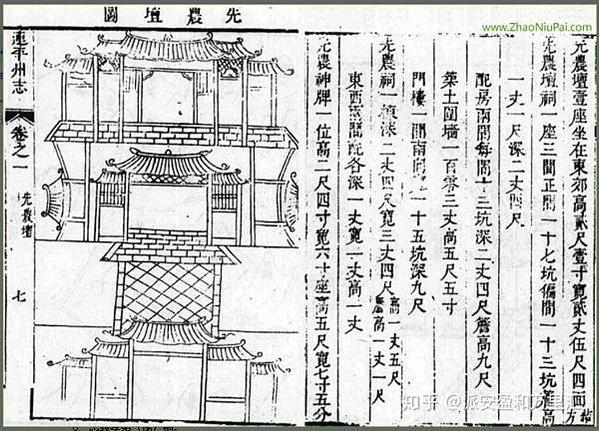 www.ZhaoNiuPai.com
先農壇壹座坐在東郊高貳尺壹寸寬貳丈伍尺四面方
先農壇祠一座三間正間一十七坑偏間一十三坑簷高
一丈一尺深二丈四尺
配房兩間每間十三坑深二丈四尺簷高九尺
築土圍墻一百零三丈高五尺五寸
門樓一間南向一十五坑深九尺
先農祠一楨深二丈四尺寬三丈四尺高一丈五尺簷高一丈一尺
東西兩間配各深一丈寬一丈高一丈
先農神牌一位高二尺四寸寬六寸座高五尺寬七寸五分
先農壇圖
連平州志
卷之一
先農壇
七
知乎